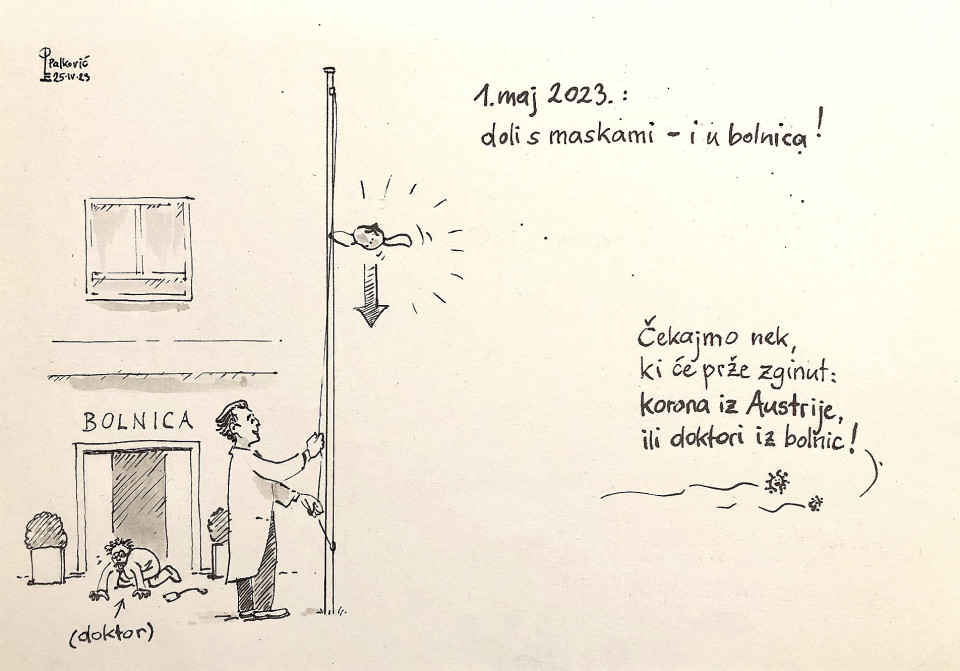 Palković
25·IV·23
1.maj 2023. :
doli s maskami – i u bolnica!
BOLNICA
Čekajmo nek,
ki će prže zginut:
korona iz Austrije,
ili doktori iz bolnic!
(doktor)